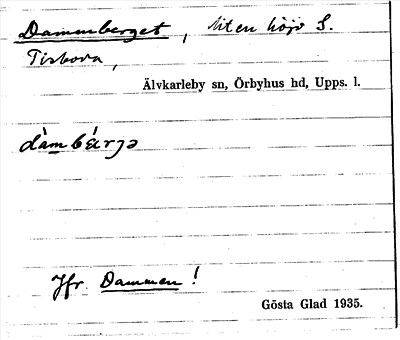 Dammberget, liten höjd S.
Tisbora,
Älvkarleby sn, Örbyhus hd, Upps. l.
Jfr. Dammen!
Gösta Glad 1935.